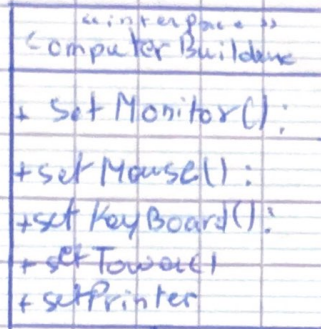 «interface»
Computer Builder
+ set Monitor();
+ set Mouse():
+ set KeyBoard():
+ set Tower()
+ setPrinter